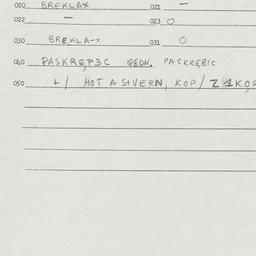 020 BREKLAX 021 –
022 – 023 O
030 BREKLA-X 031 O
040 PASKREP3C GEDN. PASKREBIC
050 +/ HOT A S+VERN, KOP/